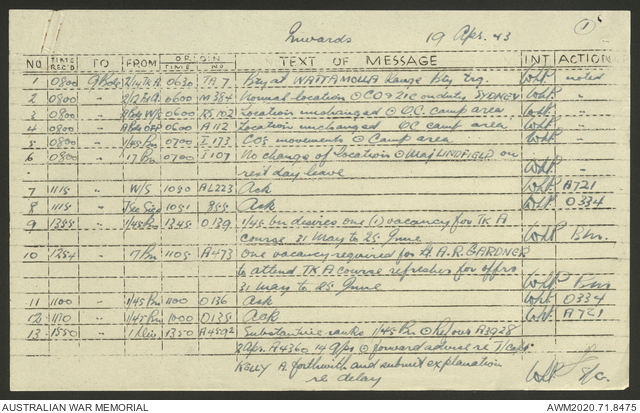 Inwards 19 Apr. 43 1
NO TIME REC'D TO FROM ORIGIN TIME NO. TEXT OF MESSAGE INT ACTION
1 0800 9 Bde 0630 TA 7 Bty at WATTAMOLLA Range Bty trg. noted
2 0800 " 0600 M 384 Normal location CO & 2ic on duty SYDNEY "
3 0800 " 0600 Location unchanged OC. camp area "
4 0800 " 0600 A 112 Location unchanged OC camp area "
5 0800 " 0700 I 173 COs movements Camp area "
6 0800 " 17 Bn 0700 I 107 No change of location Maj LINDFIELD on
rest day leave "
7 1115 " W/S 1050 AL223 Ack A721
8 1115 " 1051 855 Ack 0334
9 1355 " 1/45 Bn 1345 0139 1/45 Bn desires one (1) vacancy for TK A
course 31 May to 25 June Bm.
10 1254 " 17 Bn 1105 A473 One vacancy required for A.R. GARDNER
to attend TK A course refresher for offrs
31 May to 25 June Bm
11 1100 " 1/45 Bn 1100 0136 Ack 0334
12 1110 " 1/45 Bn 1000 0135 Ack A721
13 1550 " 1 Div 1350 A4592 Substantive ranks 1/45 Bn Ref our A3928
2 Apr. A4360 14 Apr forward advice re T/Capt.
KELLY A. forthwith and submit explanation
re delay
AUSTRALIAN WAR MEMORIAL AWM2020.71.8475